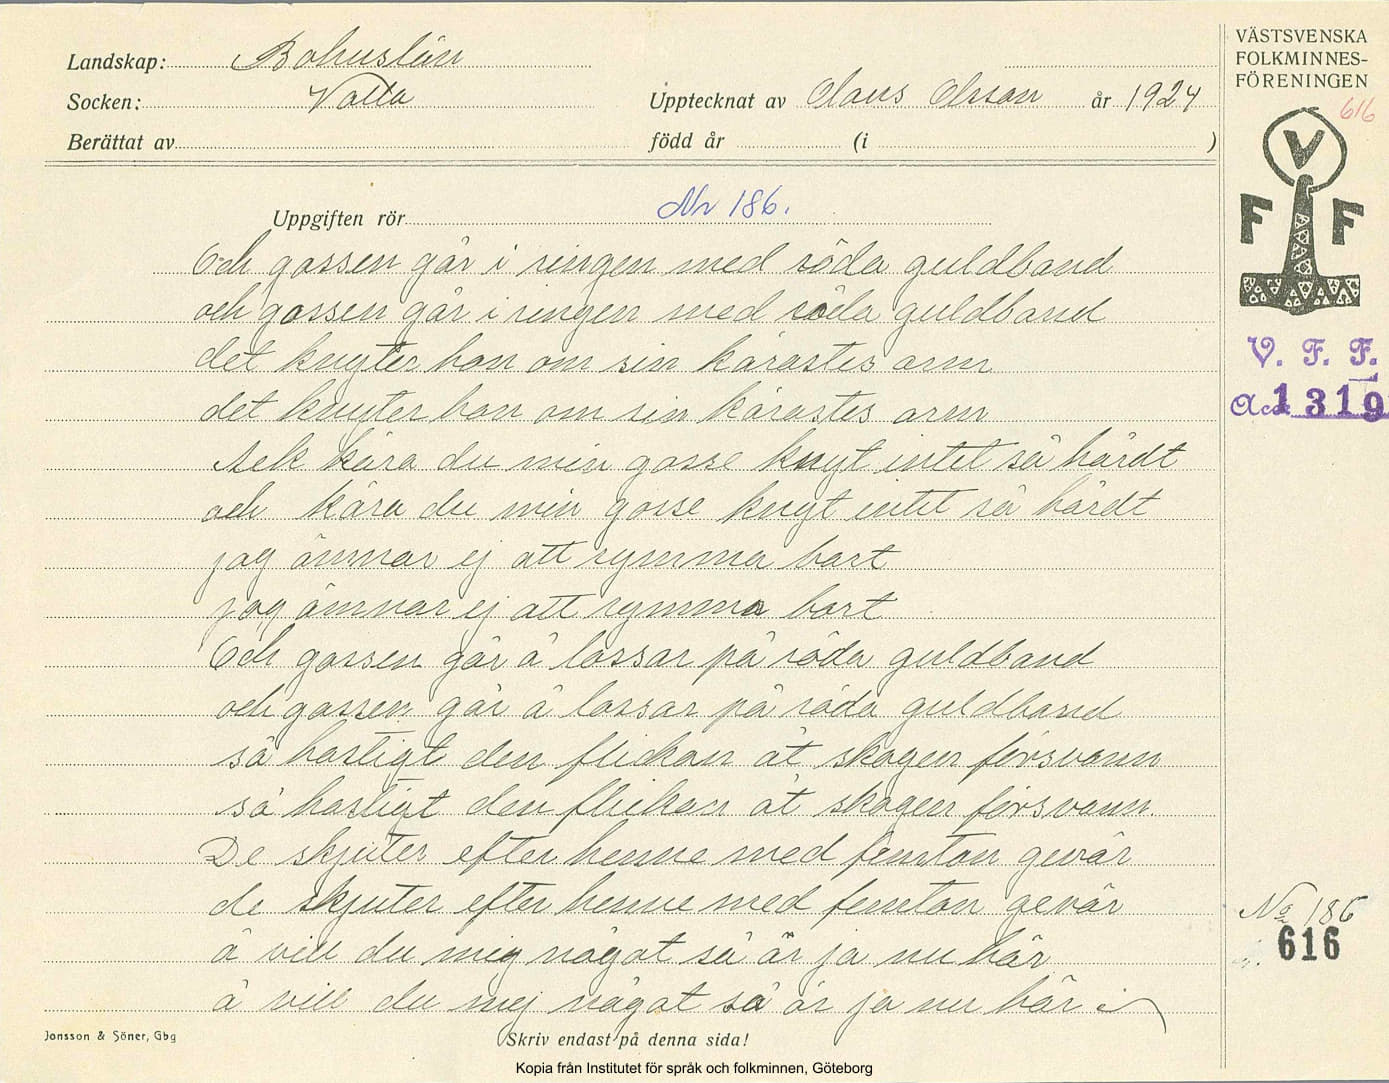 Landskap: Bohuslän
Socken: Valla
Upptecknat av Claus Olsson år 1924
Berättat av
född år (i )
VÄSTSVENSKA
FOLKMINNES-
FÖRENINGEN
616
V
F F
V. F. F.
Acc 1319
Uppgiften rör Nr 186.
Och gossen går i ringen med röda guldband
och gossen går i ringen med röda guldband
det knyter han om sin kärastes arm
det knyter han om sin kärastes arm
Ack kära du min gosse knyt intet så hårdt
och kära du min gosse knyt intet så hårdt
jag ämnar ej att rymma bort
jag ämnar ej att rymma bort
Och gossen går å lossar på röda guldband
och gossen går å lossar på röda guldband
så hastigt den flickan åt skogen försvann
så hastigt den flickan åt skogen försvann.
De skjuter efter henne med femton gevär
de skjuter efter henne med femton gevär
å vill du mig något så är ja nu här
å vill du mej något så är ja nu här
No 186
616
Jonsson & Söner, Gbg
Skriv endast på denna sida!
Kopia från Institutet för språk och folkminnen, Göteborg